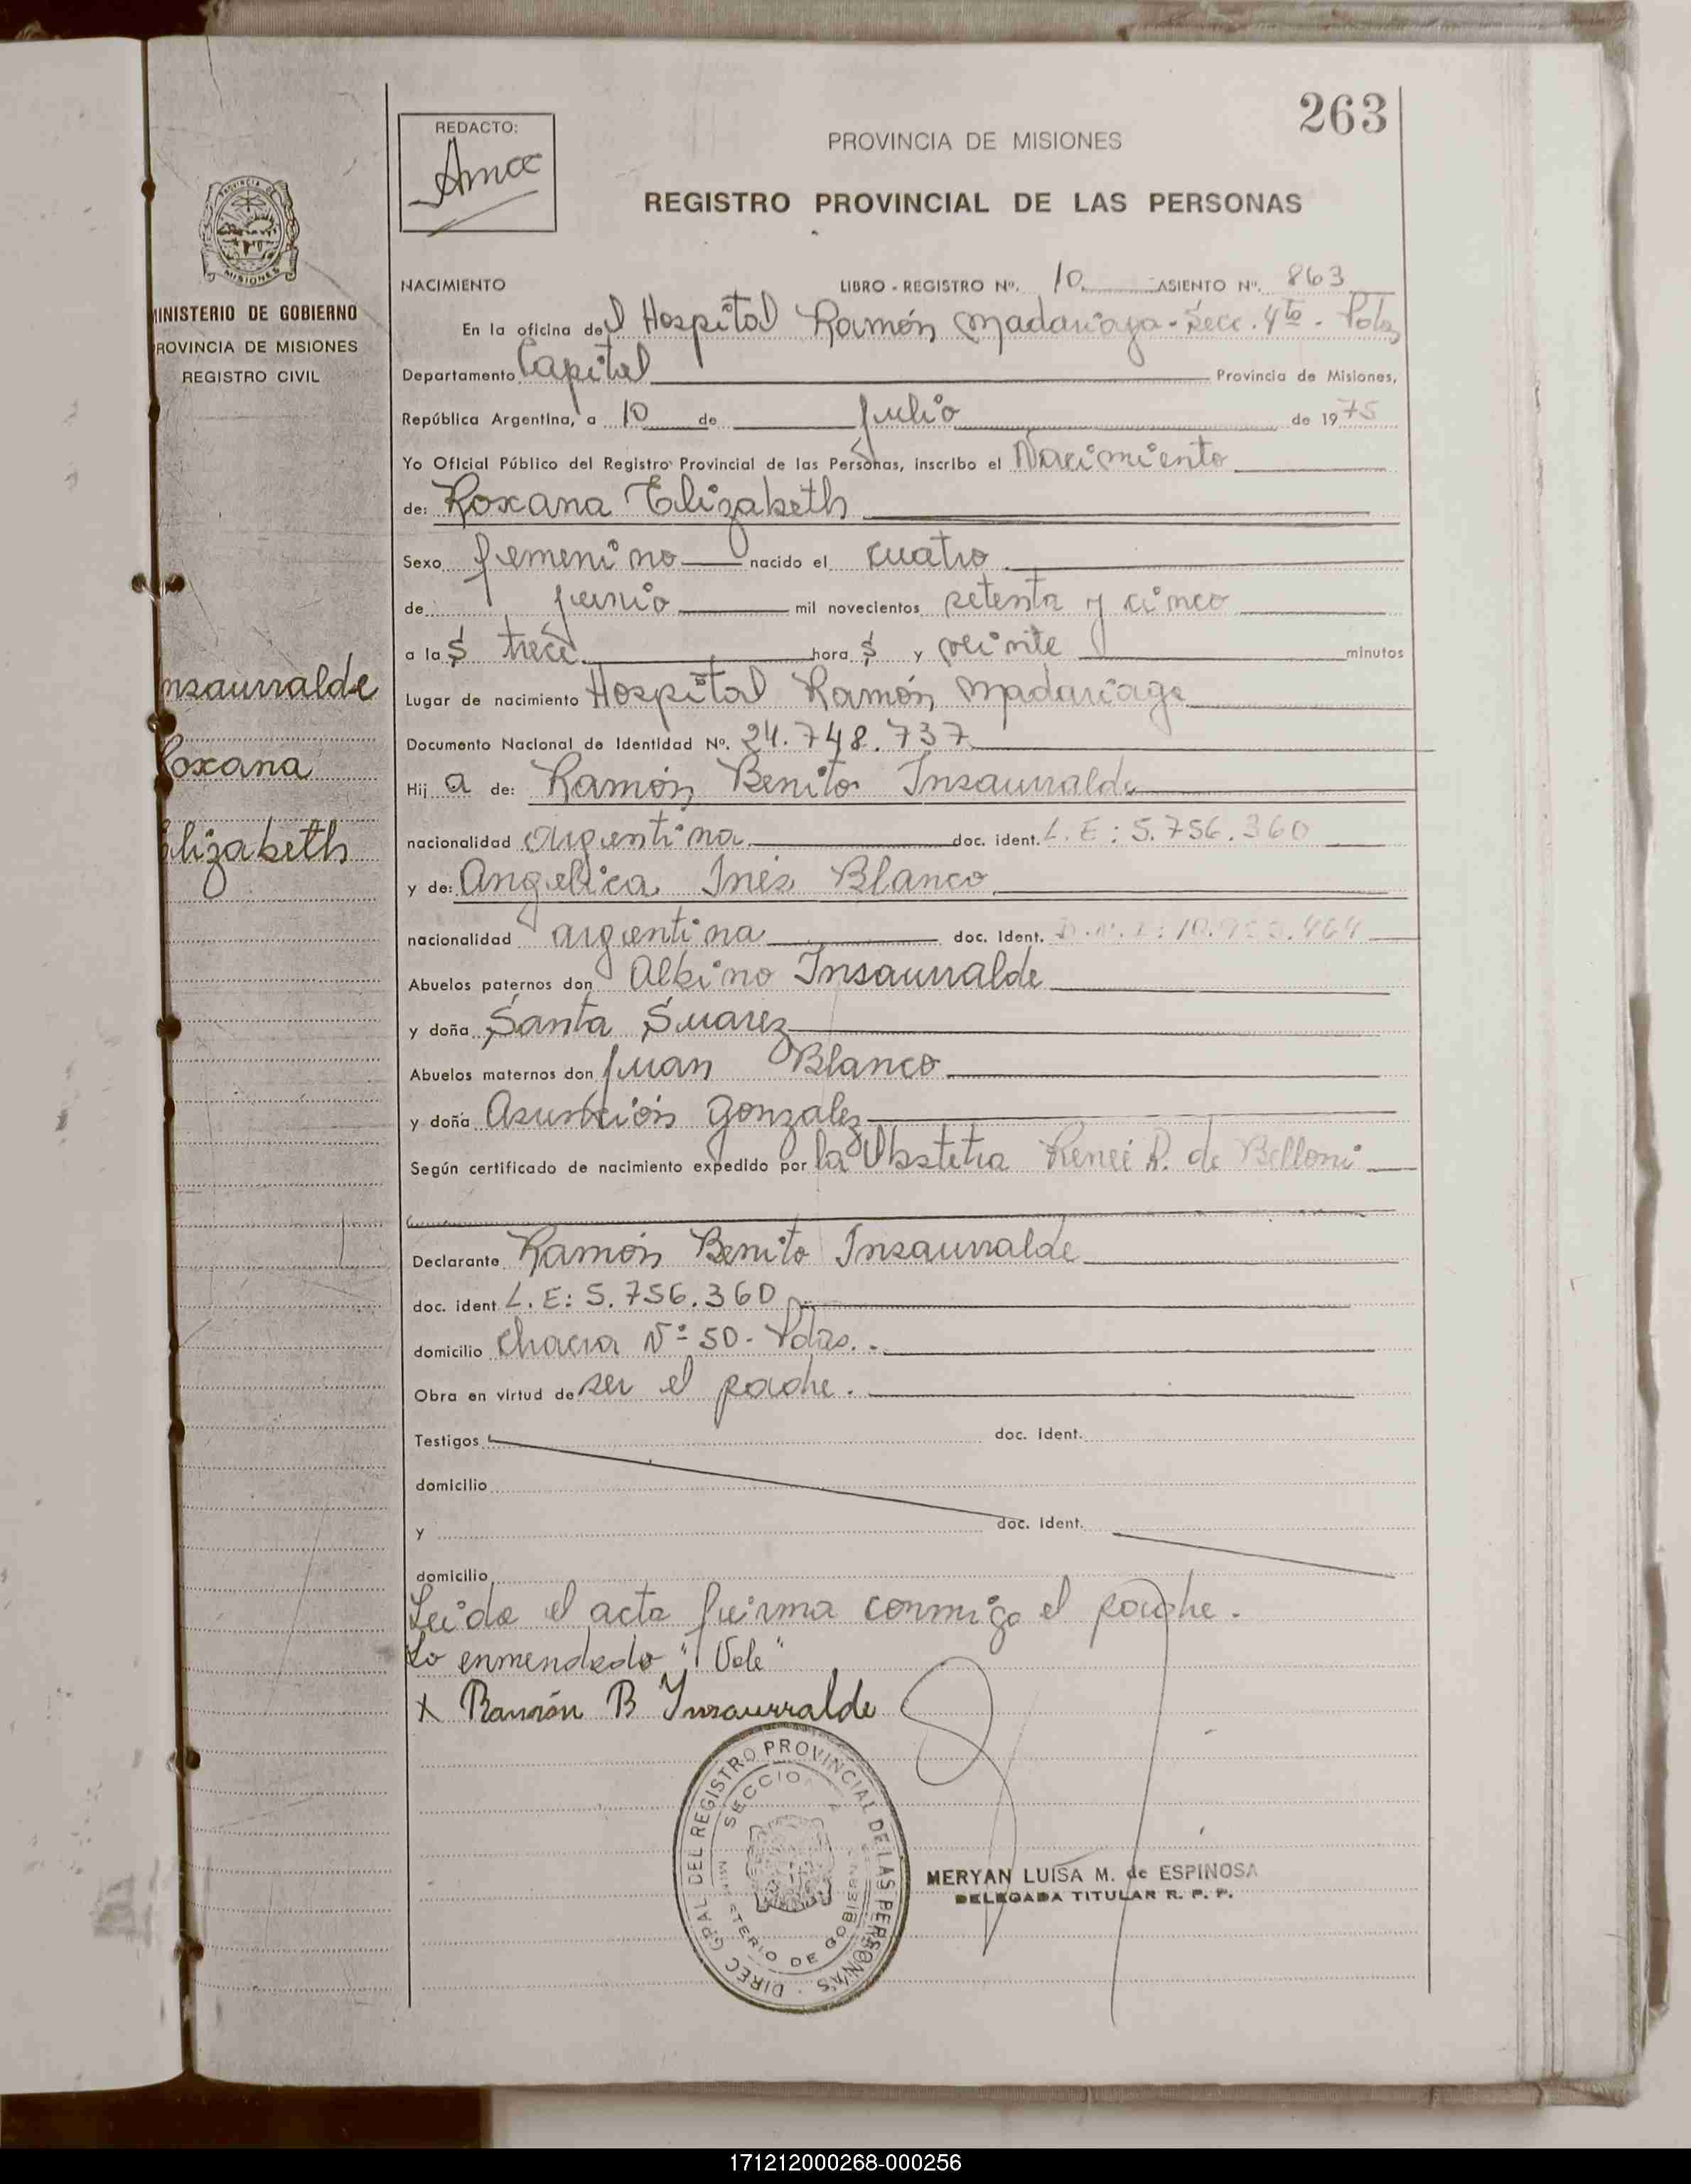 263
REDACTO:
PROVINCIA DE MISIONES
REGISTRO PROVINCIAL DE LAS PERSONAS
PROVINCIA DE
MISIONES
MINISTERIO DE GOBIERNO
PROVINCIA DE MISIONES
REGISTRO CIVIL
nsaurralde
Roxana
Elizabeth
NACIMIENTO LIBRO - REGISTRO Nº. 10 ASIENTO Nº. 863
En la oficina del Hospital Ramón Madariaga - Secc. 4ta - Pdas
Departamento Capital Provincia de Misiones,
República Argentina, a 10 de Julio de 1975
Yo Oficial Público del Registro Provincial de las Personas, inscribo el Nacimiento
de: Roxana Elizabeth
Sexo femenino nacido el cuatro
de junio mil novecientos setenta y cinco
a las trece horas y veinte minutos
Lugar de nacimiento Hospital Ramón Madariaga
Documento Nacional de Identidad Nº. 24.748.737
Hija de: Ramón Benito Insaurralde
nacionalidad argentina doc. ident. L.E: 5.756.360
y de: Angelica Inés Blanco
nacionalidad argentina doc. Ident. D.N.I:
Abuelos paternos don Albino Insaurralde
y doña Santa Suarez
Abuelos maternos don Juan Blanco
y doña Asunción Gonzalez
Según certificado de nacimiento expedido por la Obstetra Reneé R. de Belloni
Declarante Ramón Benito Insaurralde
doc. ident L.E: 5.756.360
domicilio Chacra Nº 50 - Pdas.
Obra en virtud de ser el padre.
Testigos doc. ident.
domicilio
y doc. Ident.
domicilio
Leida el acta firma conmigo el padre.
Lo enmendado "Vale"
X Ramón B Insaurralde
DIREC GRAL DEL REGISTRO PROVINCIAL DE LAS PERSONAS
SECCIO
MINISTERIO DE GOBIERNO
MERYAN LUISA M. de ESPINOSA
DELEGADA TITULAR R. P. P.
171212000268-000256